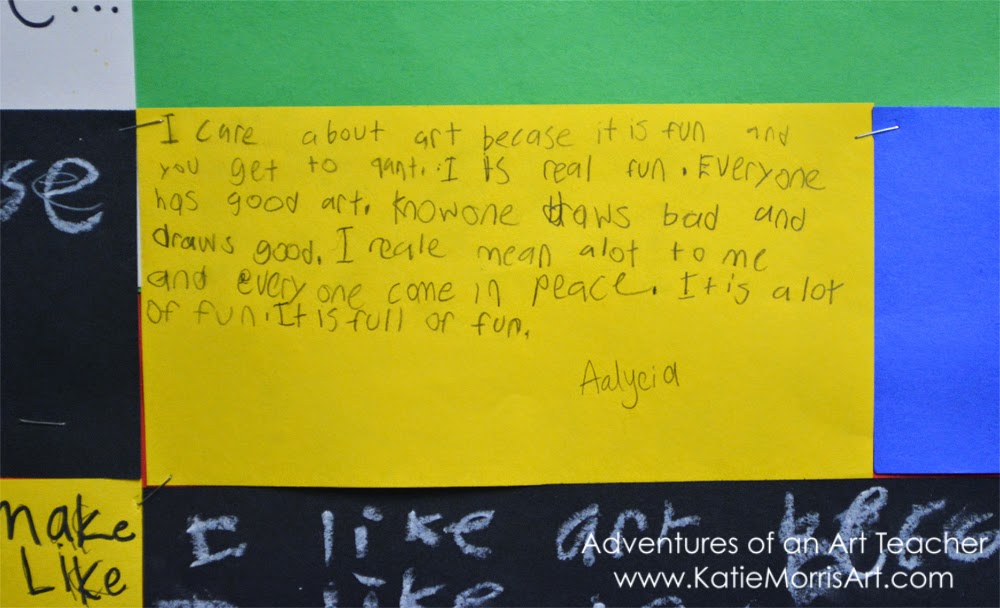 I care about art becase it is fun and
you get to I ts real fun. Everyone
has good art. Knowone draws bad and
draws good. I reale mean alot to me
and every one come in peace. It is a lot
of fun. It is full of fun.
Aalycia
se
make
Like
I like art beco
I like
Adventures of an Art Teacher
www.KatieMorrisArt.com